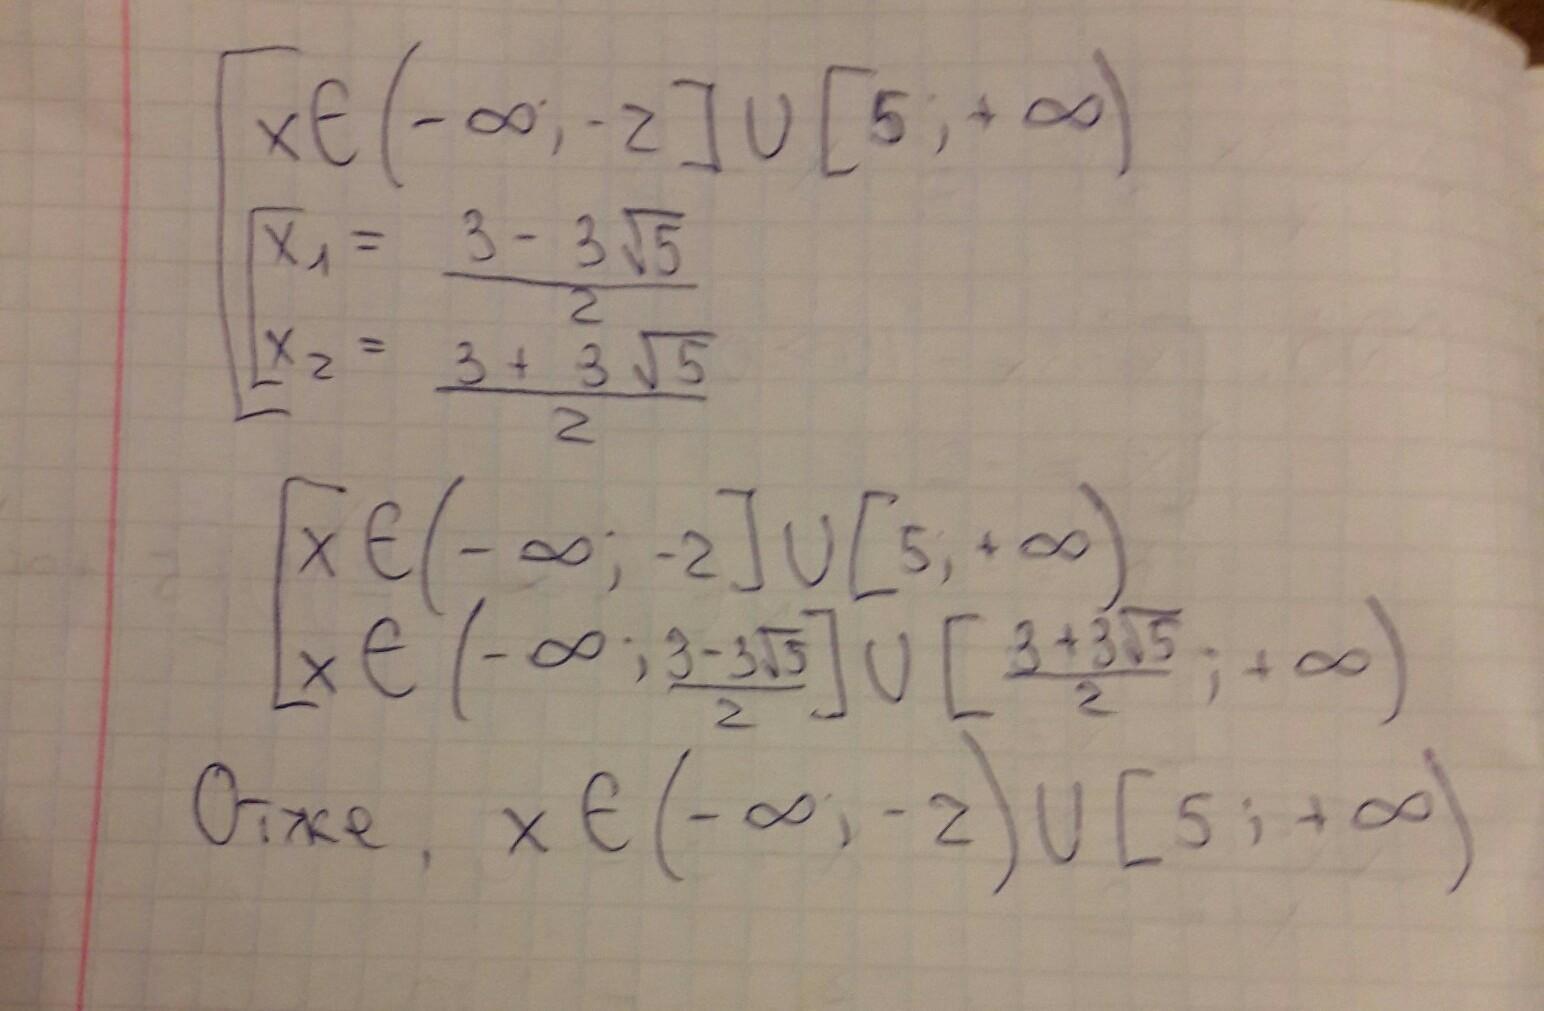 x∈(-∞; -2]∪[5; +∞)
x₁ = (3 - 3√5)/2
x₂ = (3 + 3√5)/2
x∈(-∞; -2]∪[5; +∞)
x∈(-∞; (3-3√5)/2]∪[(3+3√5)/2; +∞)
Отже, x∈(-∞; -2)∪[5; +∞)